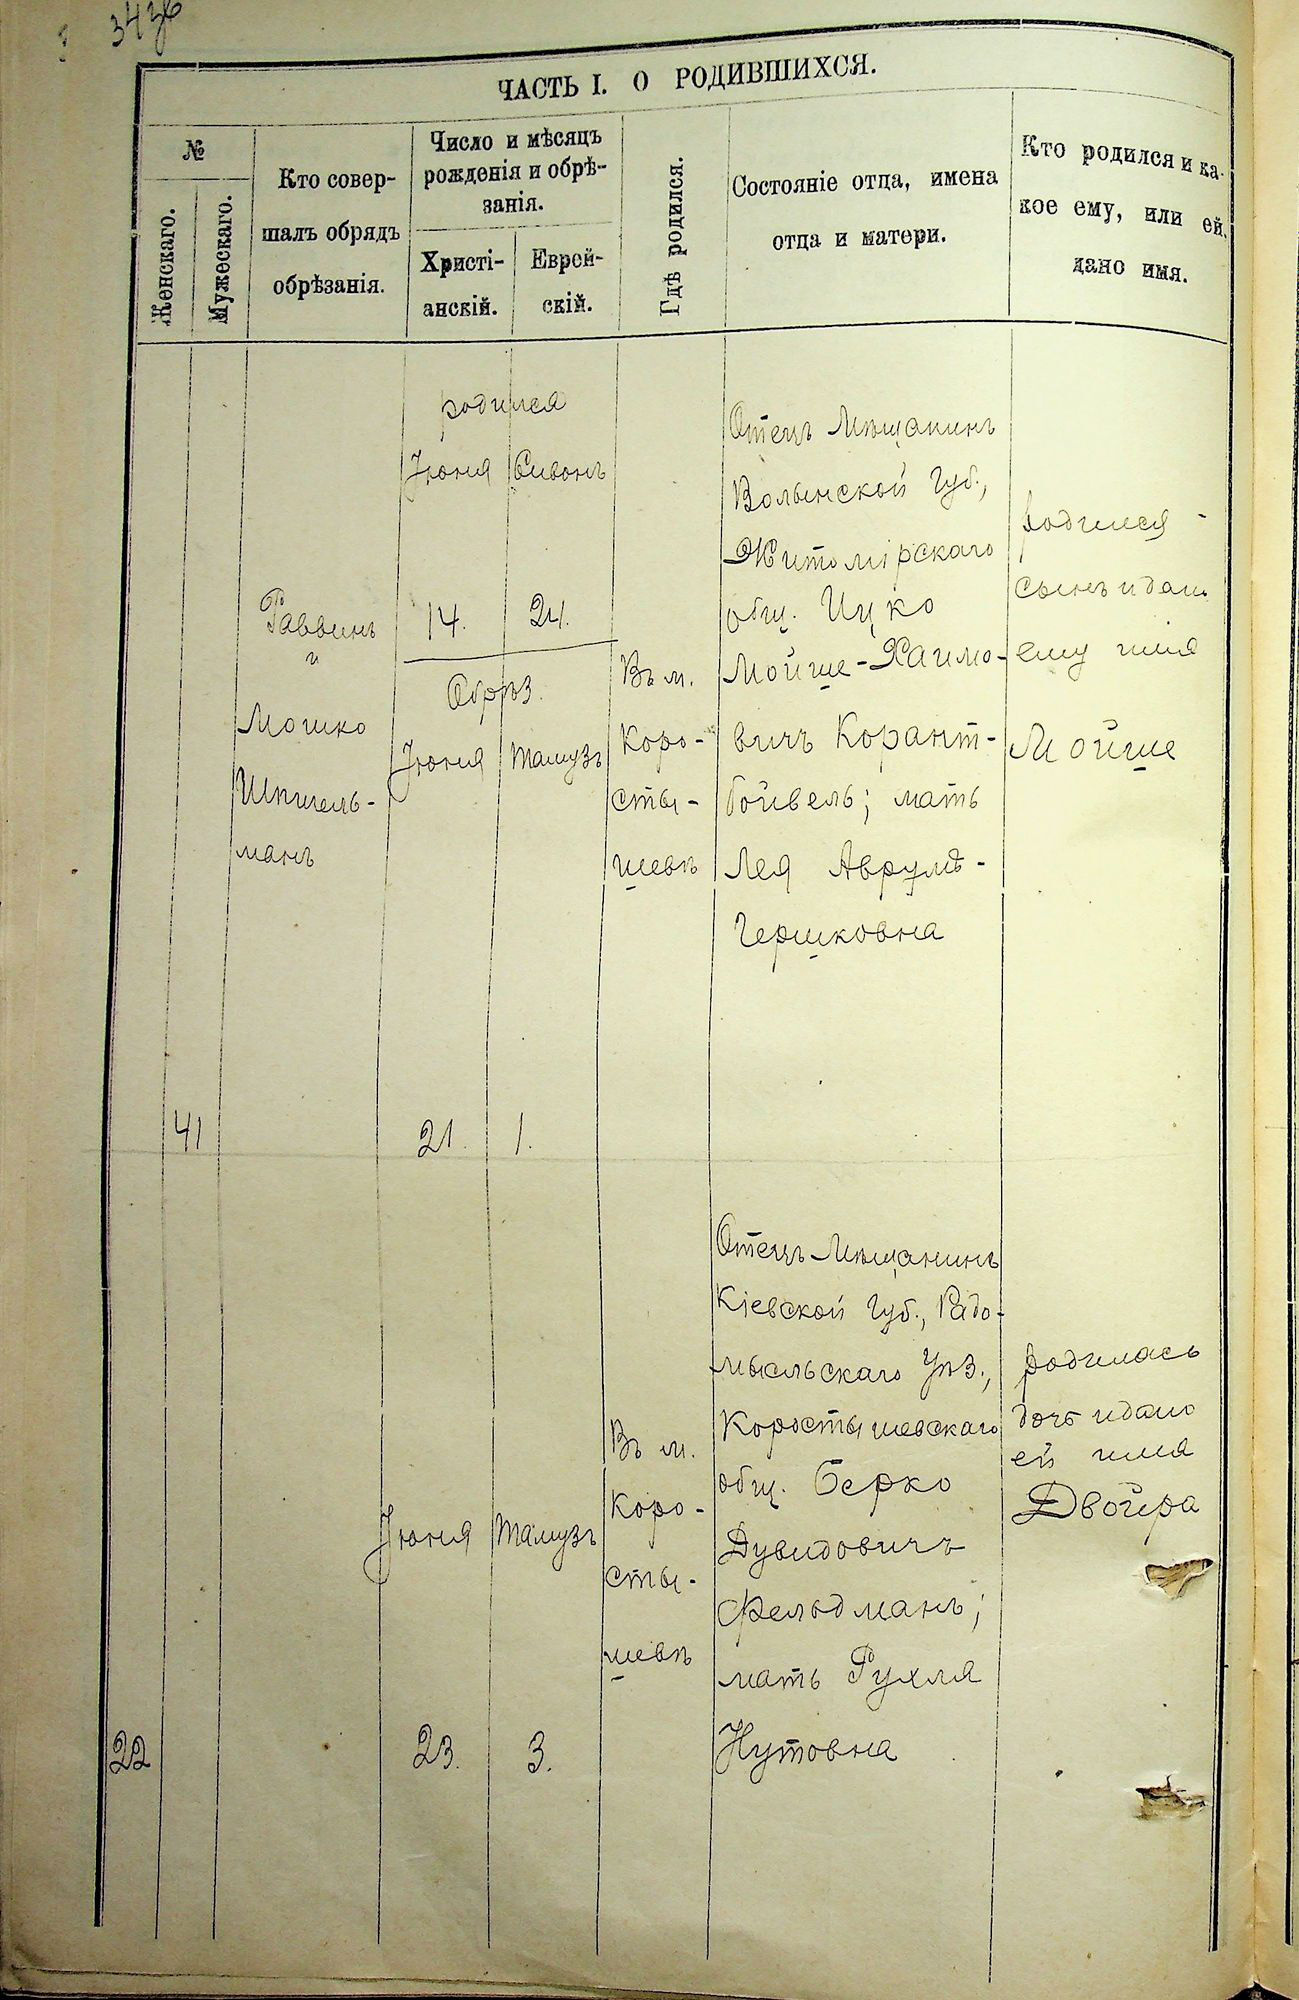 ЧАСТЬ I. О РОДИВШИХСЯ.
№
Женскаго.
Мужескаго.
Кто совер-
шалъ обрядъ
обрѣзанія.
Число и мѣсяцъ
рожденія и обрѣ-
занія.
Христі-
анскій.
Еврей-
скій.
Гдѣ родился.
Состояніе отца, имена
отца и матери.
Кто родился и ка-
кое ему, или ей,
дано имя.
41
Раввинъ
и
Мошко
Шпигель-
манъ
родился
Іюня Сивонъ
14. 24.
Обрѣз.
Іюня Тамузъ
21. 1.
Въ м.
Коро-
сты-
шевѣ
Отецъ Мѣщанинъ
Волынской Губ.,
Житомірскаго
общ. Ицко
Мойше-Хаимо-
вичъ Корант-
бойвель; мать
Лея Аврумъ-
Гершковна
родился
сынъ и дано
ему имя
Мойше
22
Іюня Тамузъ
23. 3.
Въ м.
Коро-
сты-
шевѣ
Отецъ Мѣщанинъ
Кіевской Губ., Радо-
мысльскаго Уѣз.,
Коростышевскаго
общ. Берко
Дувидовичъ
Фельдманъ;
мать Рухля
Нутовна
родилась
дочь и дано
ей имя
Двойра